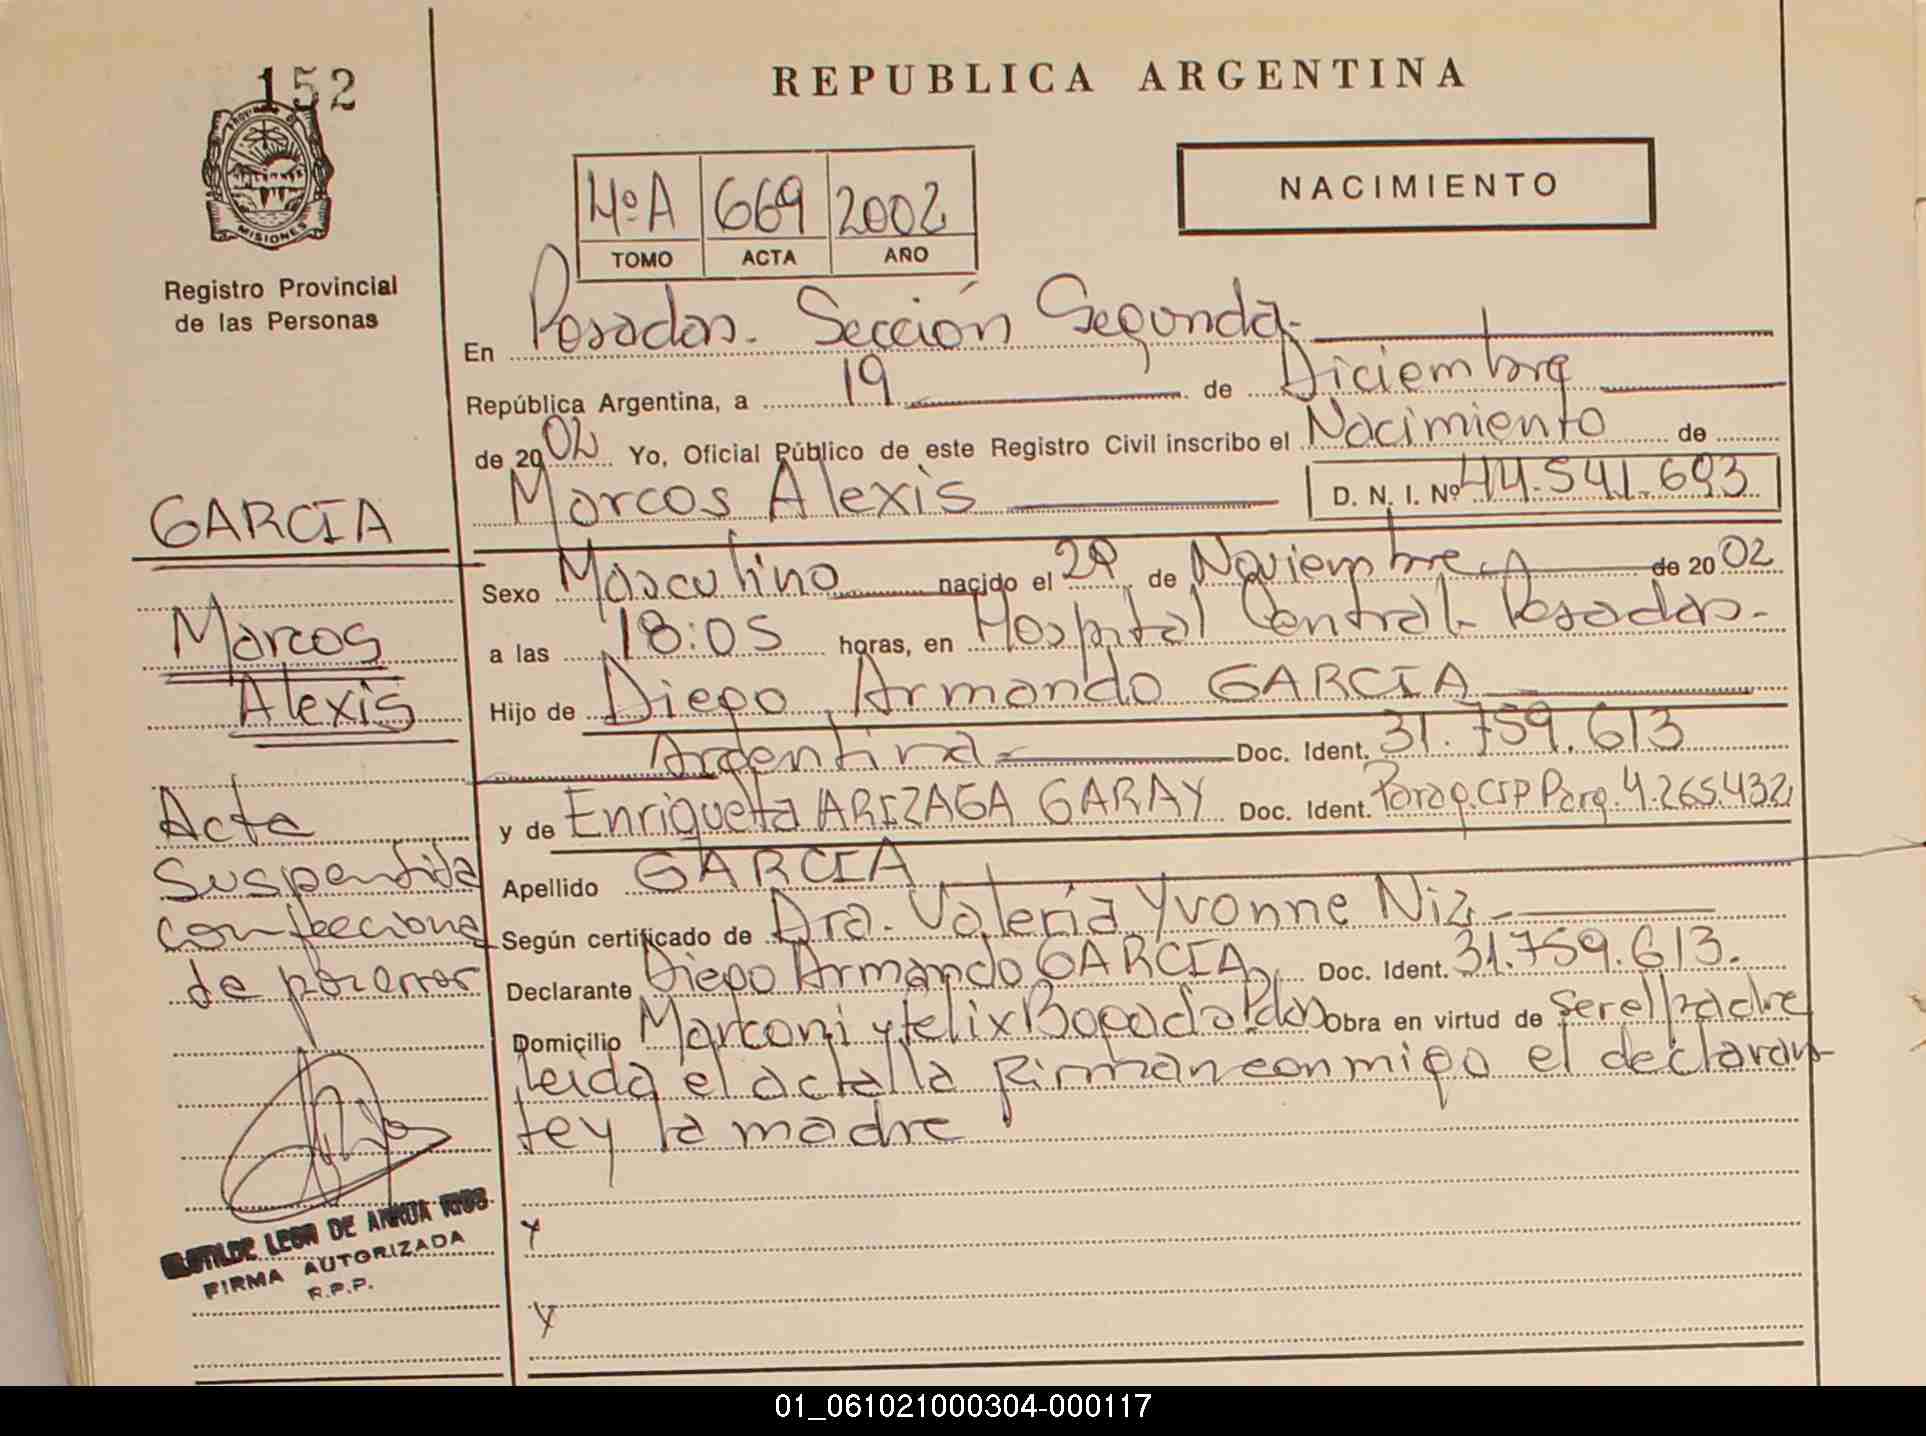 152
REPUBLICA ARGENTINA
PROVINCIA DE
MISIONES
Registro Provincial
de las Personas
4ºA 669 2002
TOMO ACTA AÑO
NACIMIENTO
En Posadas. Sección Segunda.
República Argentina, a 19 de Diciembre
de 2002 Yo, Oficial Público de este Registro Civil inscribo el Nacimiento de
Marcos Alexis D. N. I. Nº 44.541.693
Sexo Masculino nacido el 29 de Noviembre de 2002
a las 18:05 horas, en Hospital Central. Posadas.
Hijo de Diego Armando GARCIA
Argentina Doc. Ident. 31.759.613
y de Enriqueta ARIZAGA GARAY Doc. Ident. Parag.CIP Parg. 4.265.432
Apellido GARCIA
Según certificado de Dra. Valeria Yvonne Niz
Declarante Diego Armando GARCIA Doc. Ident. 31.759.613.
Domicilio Marconi y Felix Bogado Pdas Obra en virtud de ser el padre
leida el acta la firman conmigo el declaran
te y la madre
GARCIA
Marcos
Alexis
Acta
Suspendida
confecciona
da por error
LEON DE
FIRMA AUTORIZADA
R.P.P.
01_061021000304-000117